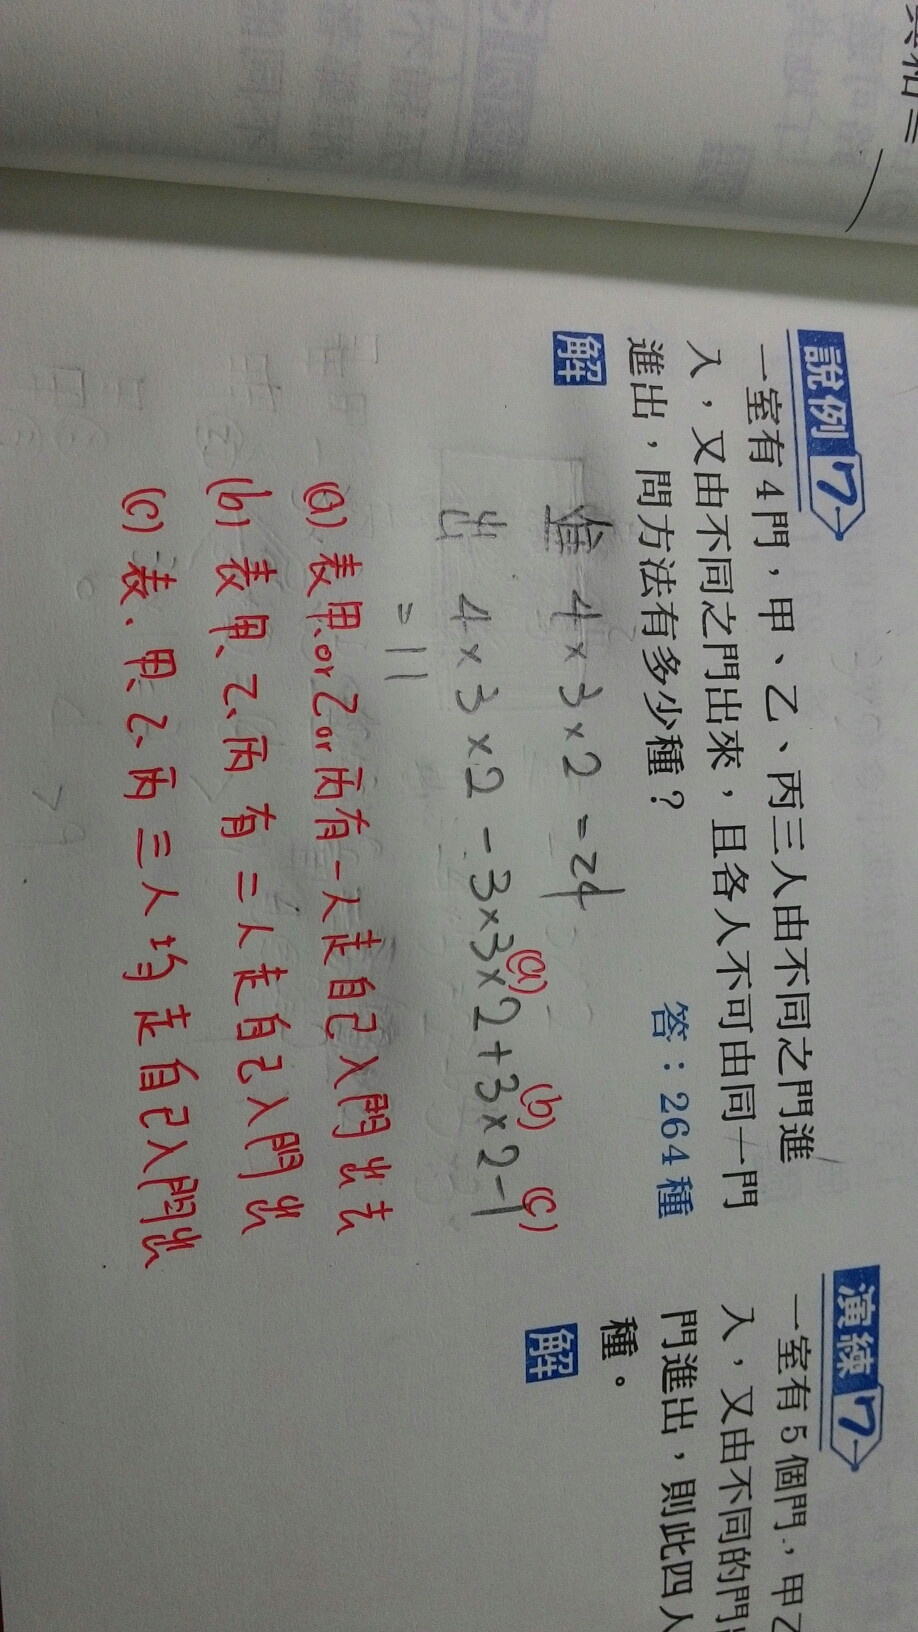 說例7
一室有4門，甲、乙、丙三人由不同之門進
入，又由不同之門出來，且各人不可由同一門
進出，問方法有多少種？
答：264種
解
進 4×3×2 = 24
出 4×3×2 - 3×3×2 + 3×2 - 1
(a) (b) (c)
= 11
(a) 表甲or乙or丙有一人走自己入門出去
(b) 表甲、乙、丙有二人走自己入門出
(c) 表、甲、乙、丙三人均走自己入門出
演練7
一室有5個門，甲乙
入，又由不同的門
門進出，則此四人
種。
解